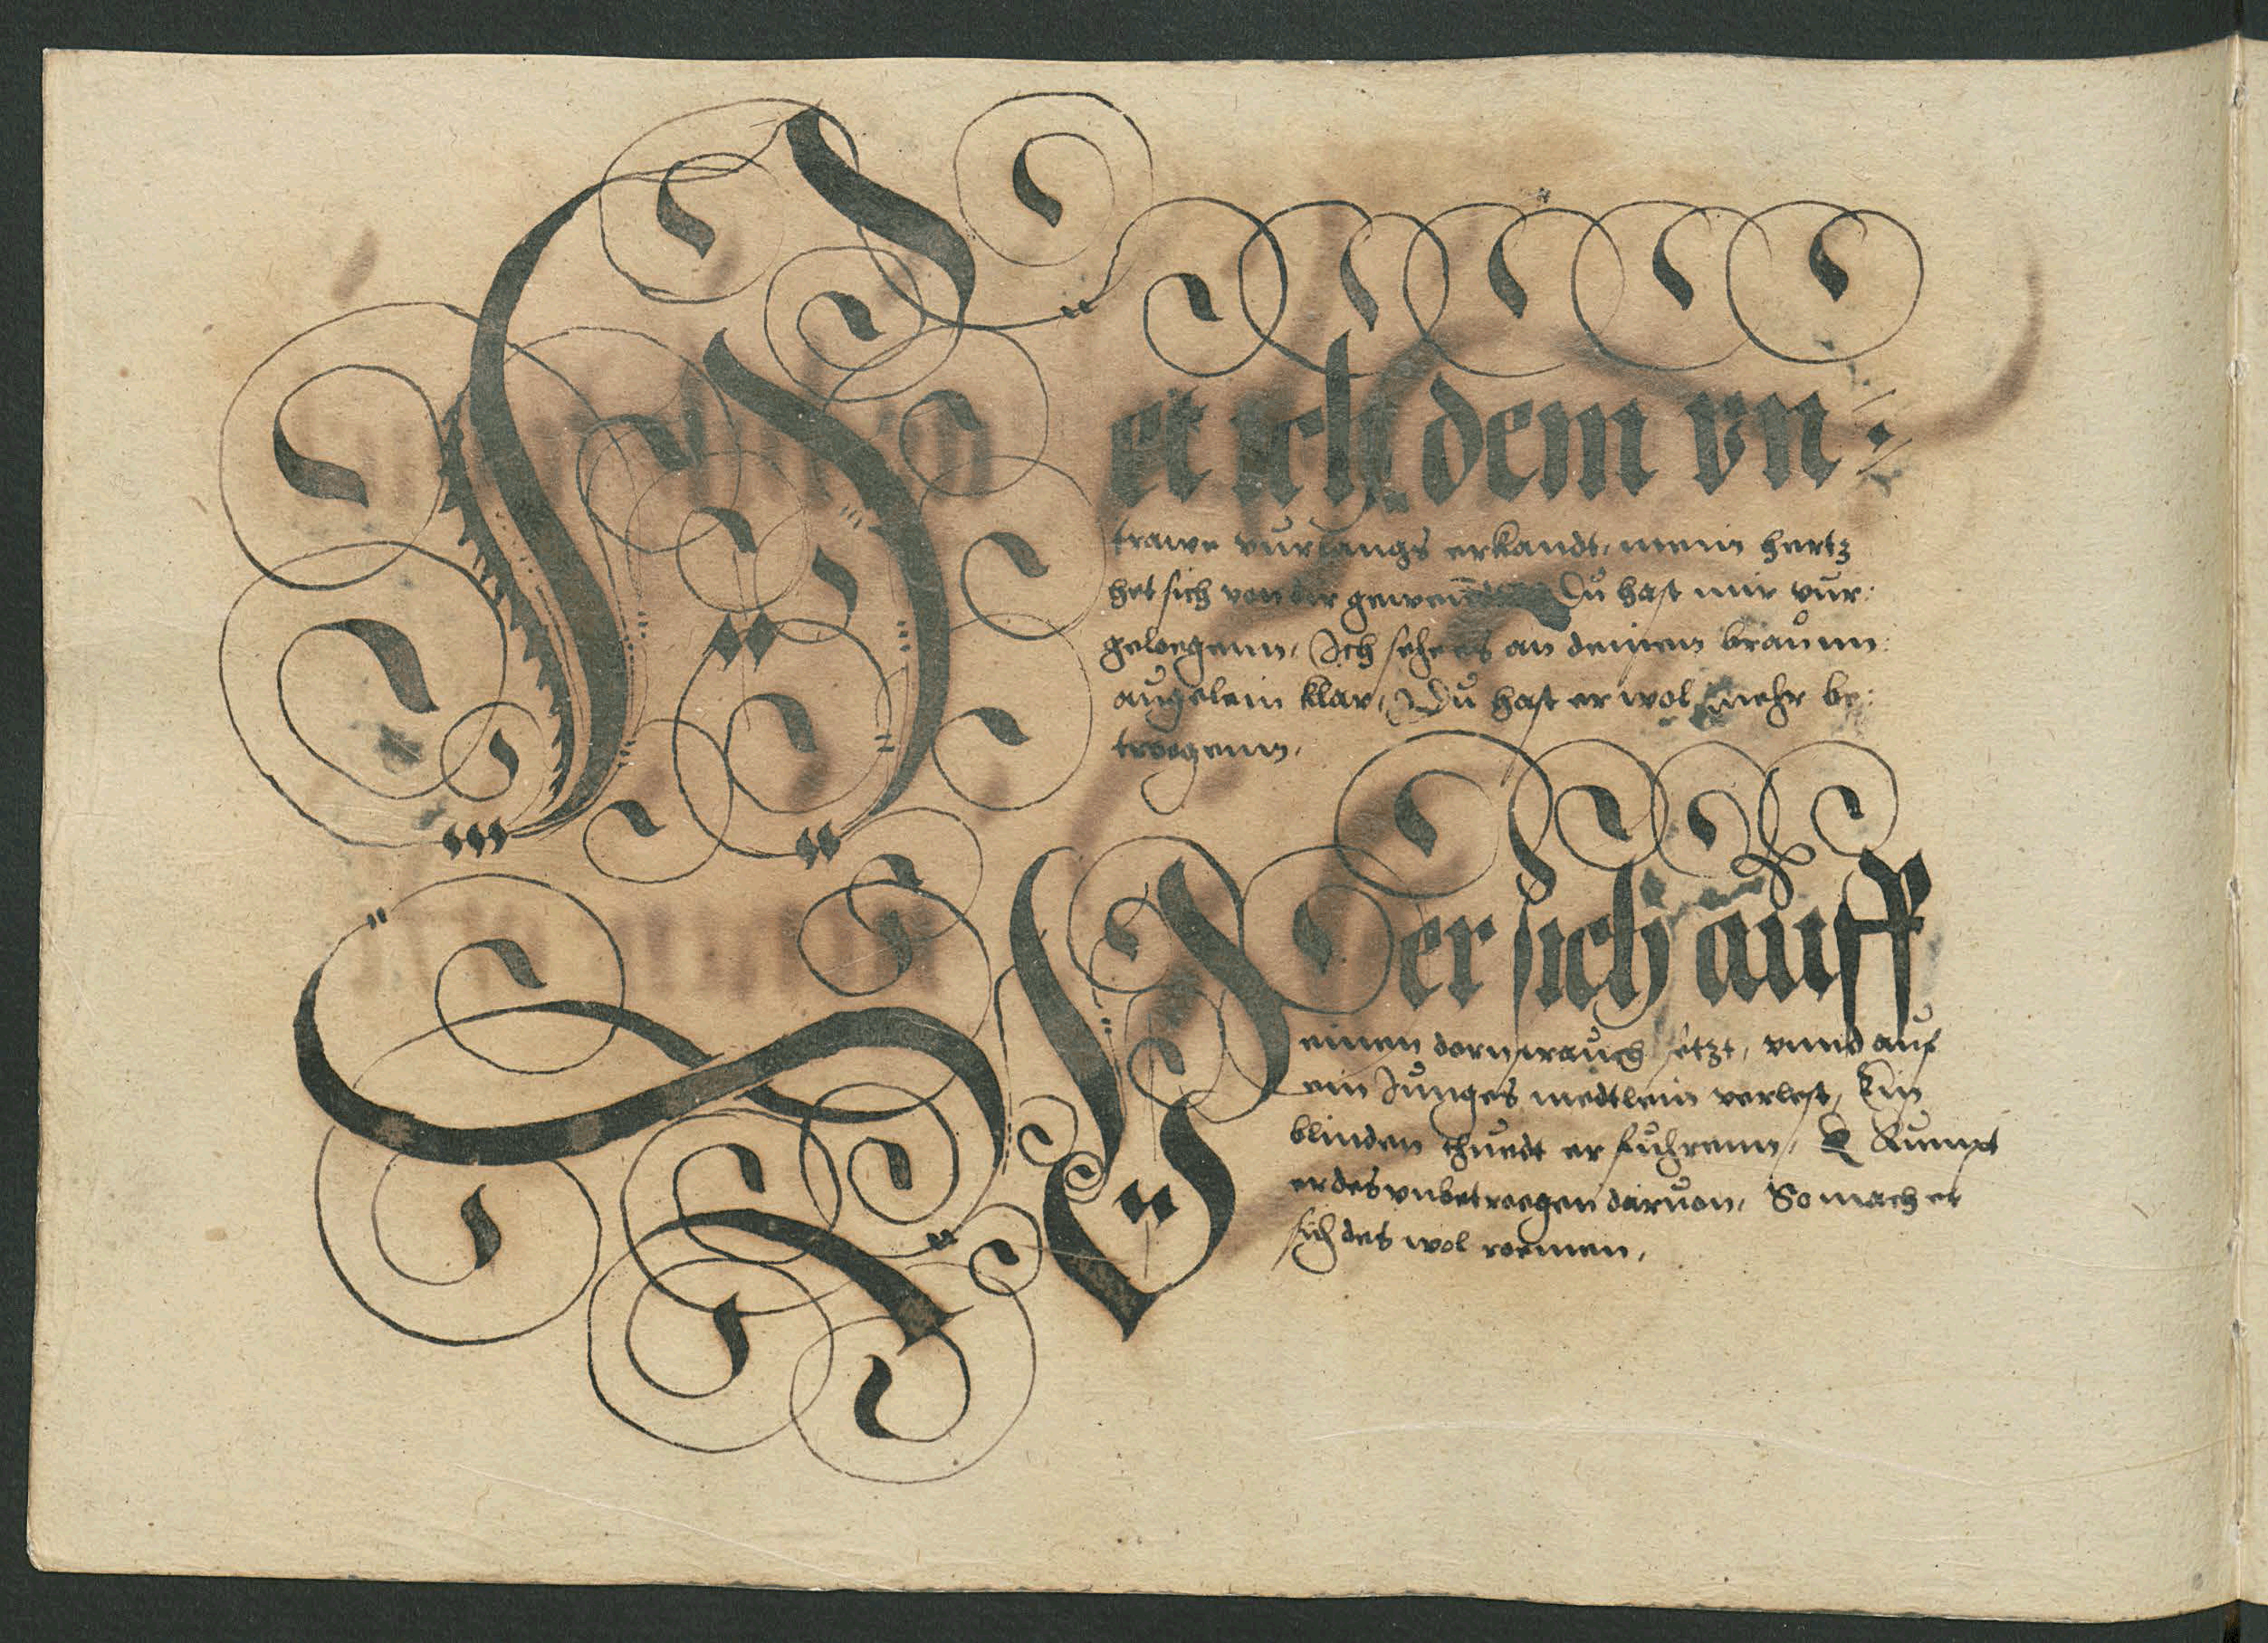 Het ich dem vn:
trawe vurlangs erkandt, mein hertz
het sich von dir gewendt, Du hast mir vur:
geloegenn, Ich sehe es an deinen braunn
augelein klar, Du hast er wol mehr be:
troegenn,
Wer sich auff
einen dornstrauch setzt, vnnd auf
ein Junges medtlein verlest, Ein
blinden thuedt er fuhrenn, Kumpt
er des vnbetroegen daruon, So mach er
sich des wol roemen,